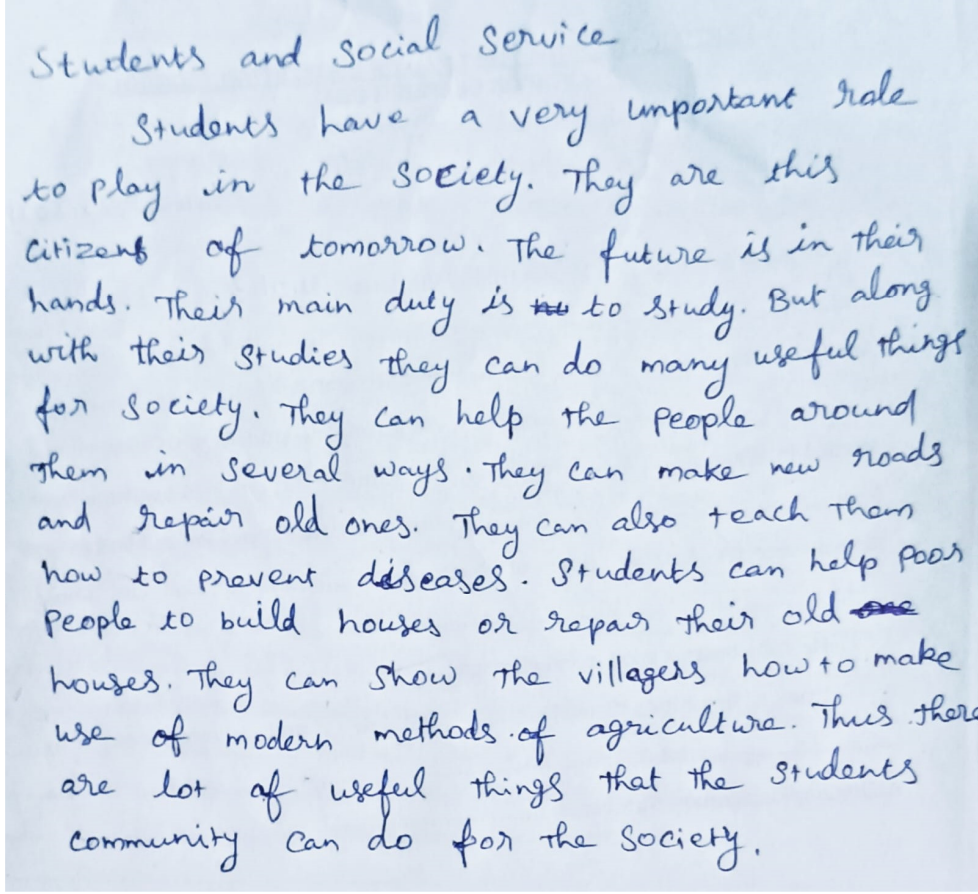 Students and Social Service
Students have a very important role
to play in the society. They are this
Citizens of tomorrow. The future is in their
hands. Their main duty is to study. But along
with their studies they can do many useful things
for society. They can help the people around
them in several ways. They can make new roads
and repair old ones. They can also teach them
how to prevent diseases. Students can help poor
People to build houses or repair their old
houses. They can show the villagers how to make
use of modern methods of agriculture. Thus there
are lot of useful things that the students
community can do for the society.